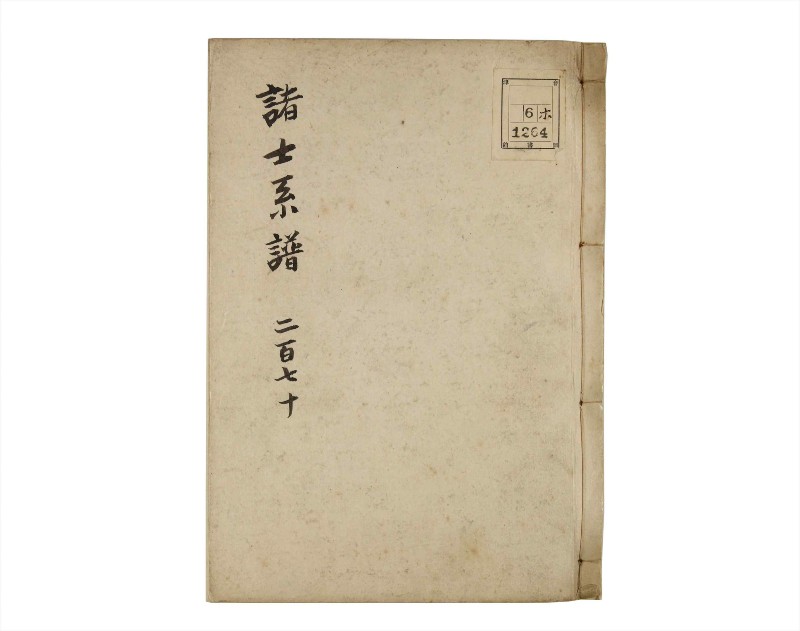 諸士系譜 二百七十
6 ホ
1264